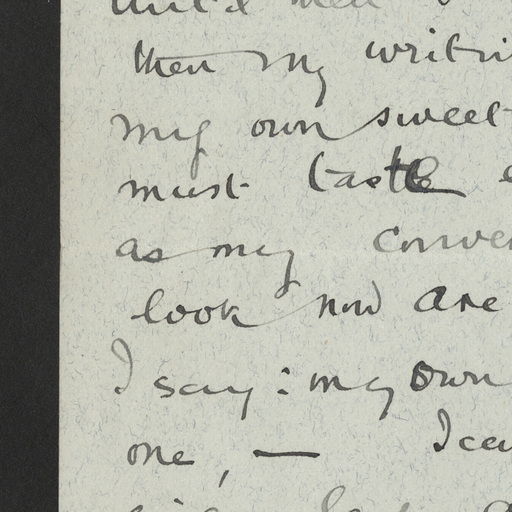 then my writi
my own sweet
must taste
as my conve
look now are
I say: my own
one, — I